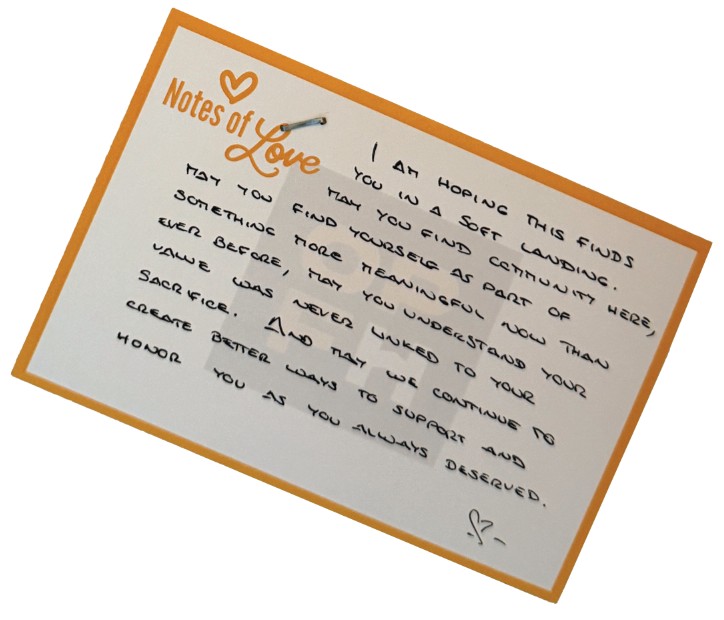 Notes of
Love
I AM HOPING THIS FINDS
YOU IN A SOFT LANDING.
MAY YOU FIND COMMUNITY HERE,
MAY YOU FIND YOURSELF AS PART OF
SOMETHING MORE MEANINGFUL NOW THAN
EVER BEFORE, MAY YOU UNDERSTAND YOUR
VALUE WAS NEVER LINKED TO YOUR
SACRIFICE. AND MAY WE CONTINUE TO
CREATE BETTER WAYS TO SUPPORT AND
HONOR YOU AS YOU ALWAYS DESERVED.